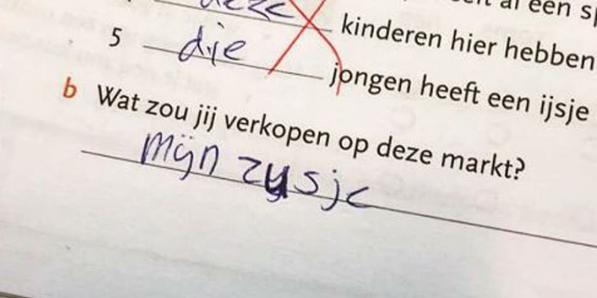 al een
deze kinderen hier hebben
5 die jongen heeft een ijsje
b Wat zou jij verkopen op deze markt?
mijn zusje